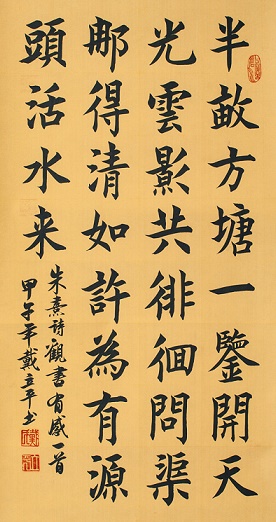 半畝方塘一鑒開天
光雲影共徘徊問渠
那得清如許為有源
頭活水来
朱熹詩觀書有感一首
甲午年戴立平书